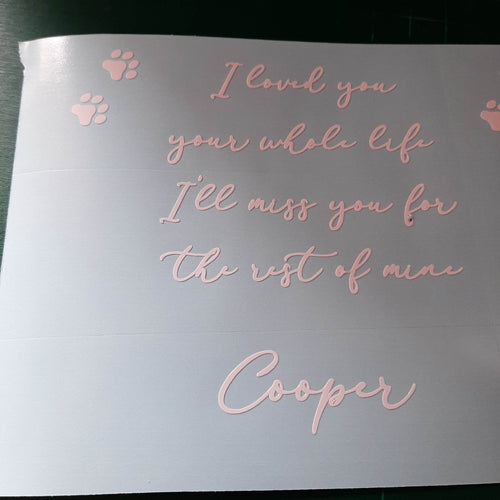 I loved you
your whole life
I'll miss you for
the rest of mine
Cooper